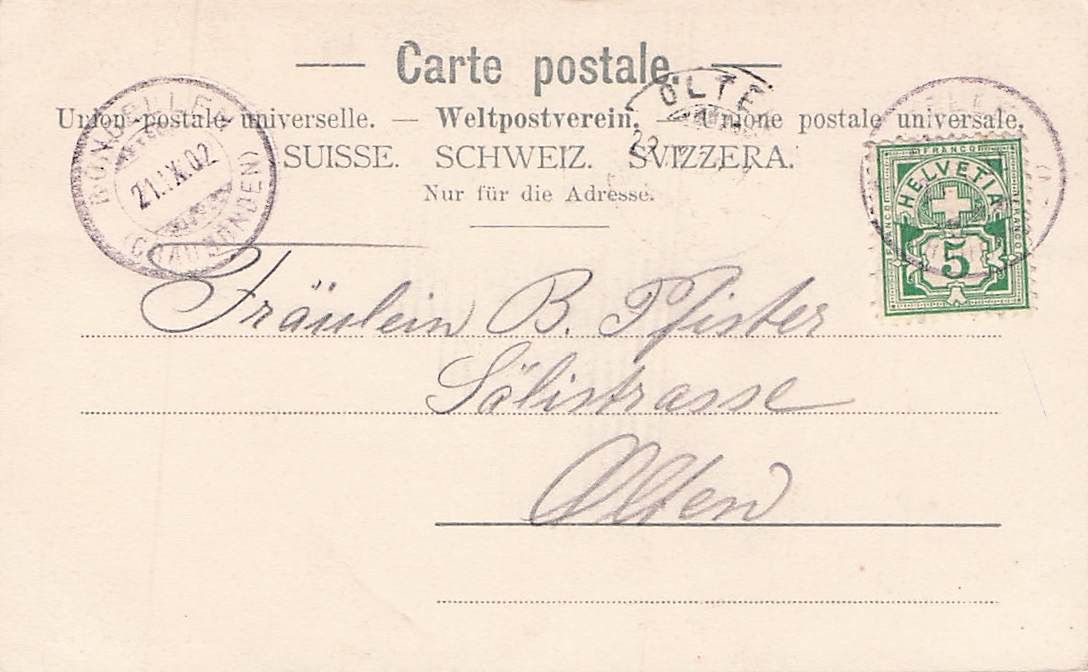 Carte postale.
Union postale universelle. — Weltpostverein. — Unione postale universale.
SUISSE. SCHWEIZ. SVIZZERA.
Nur für die Adresse.
OLTE
21.IX.02
(GRAUBÜNDEN)
FRANCO
HELVETIA
5
Fräulein B. Pfister
Sälistrasse
Olten